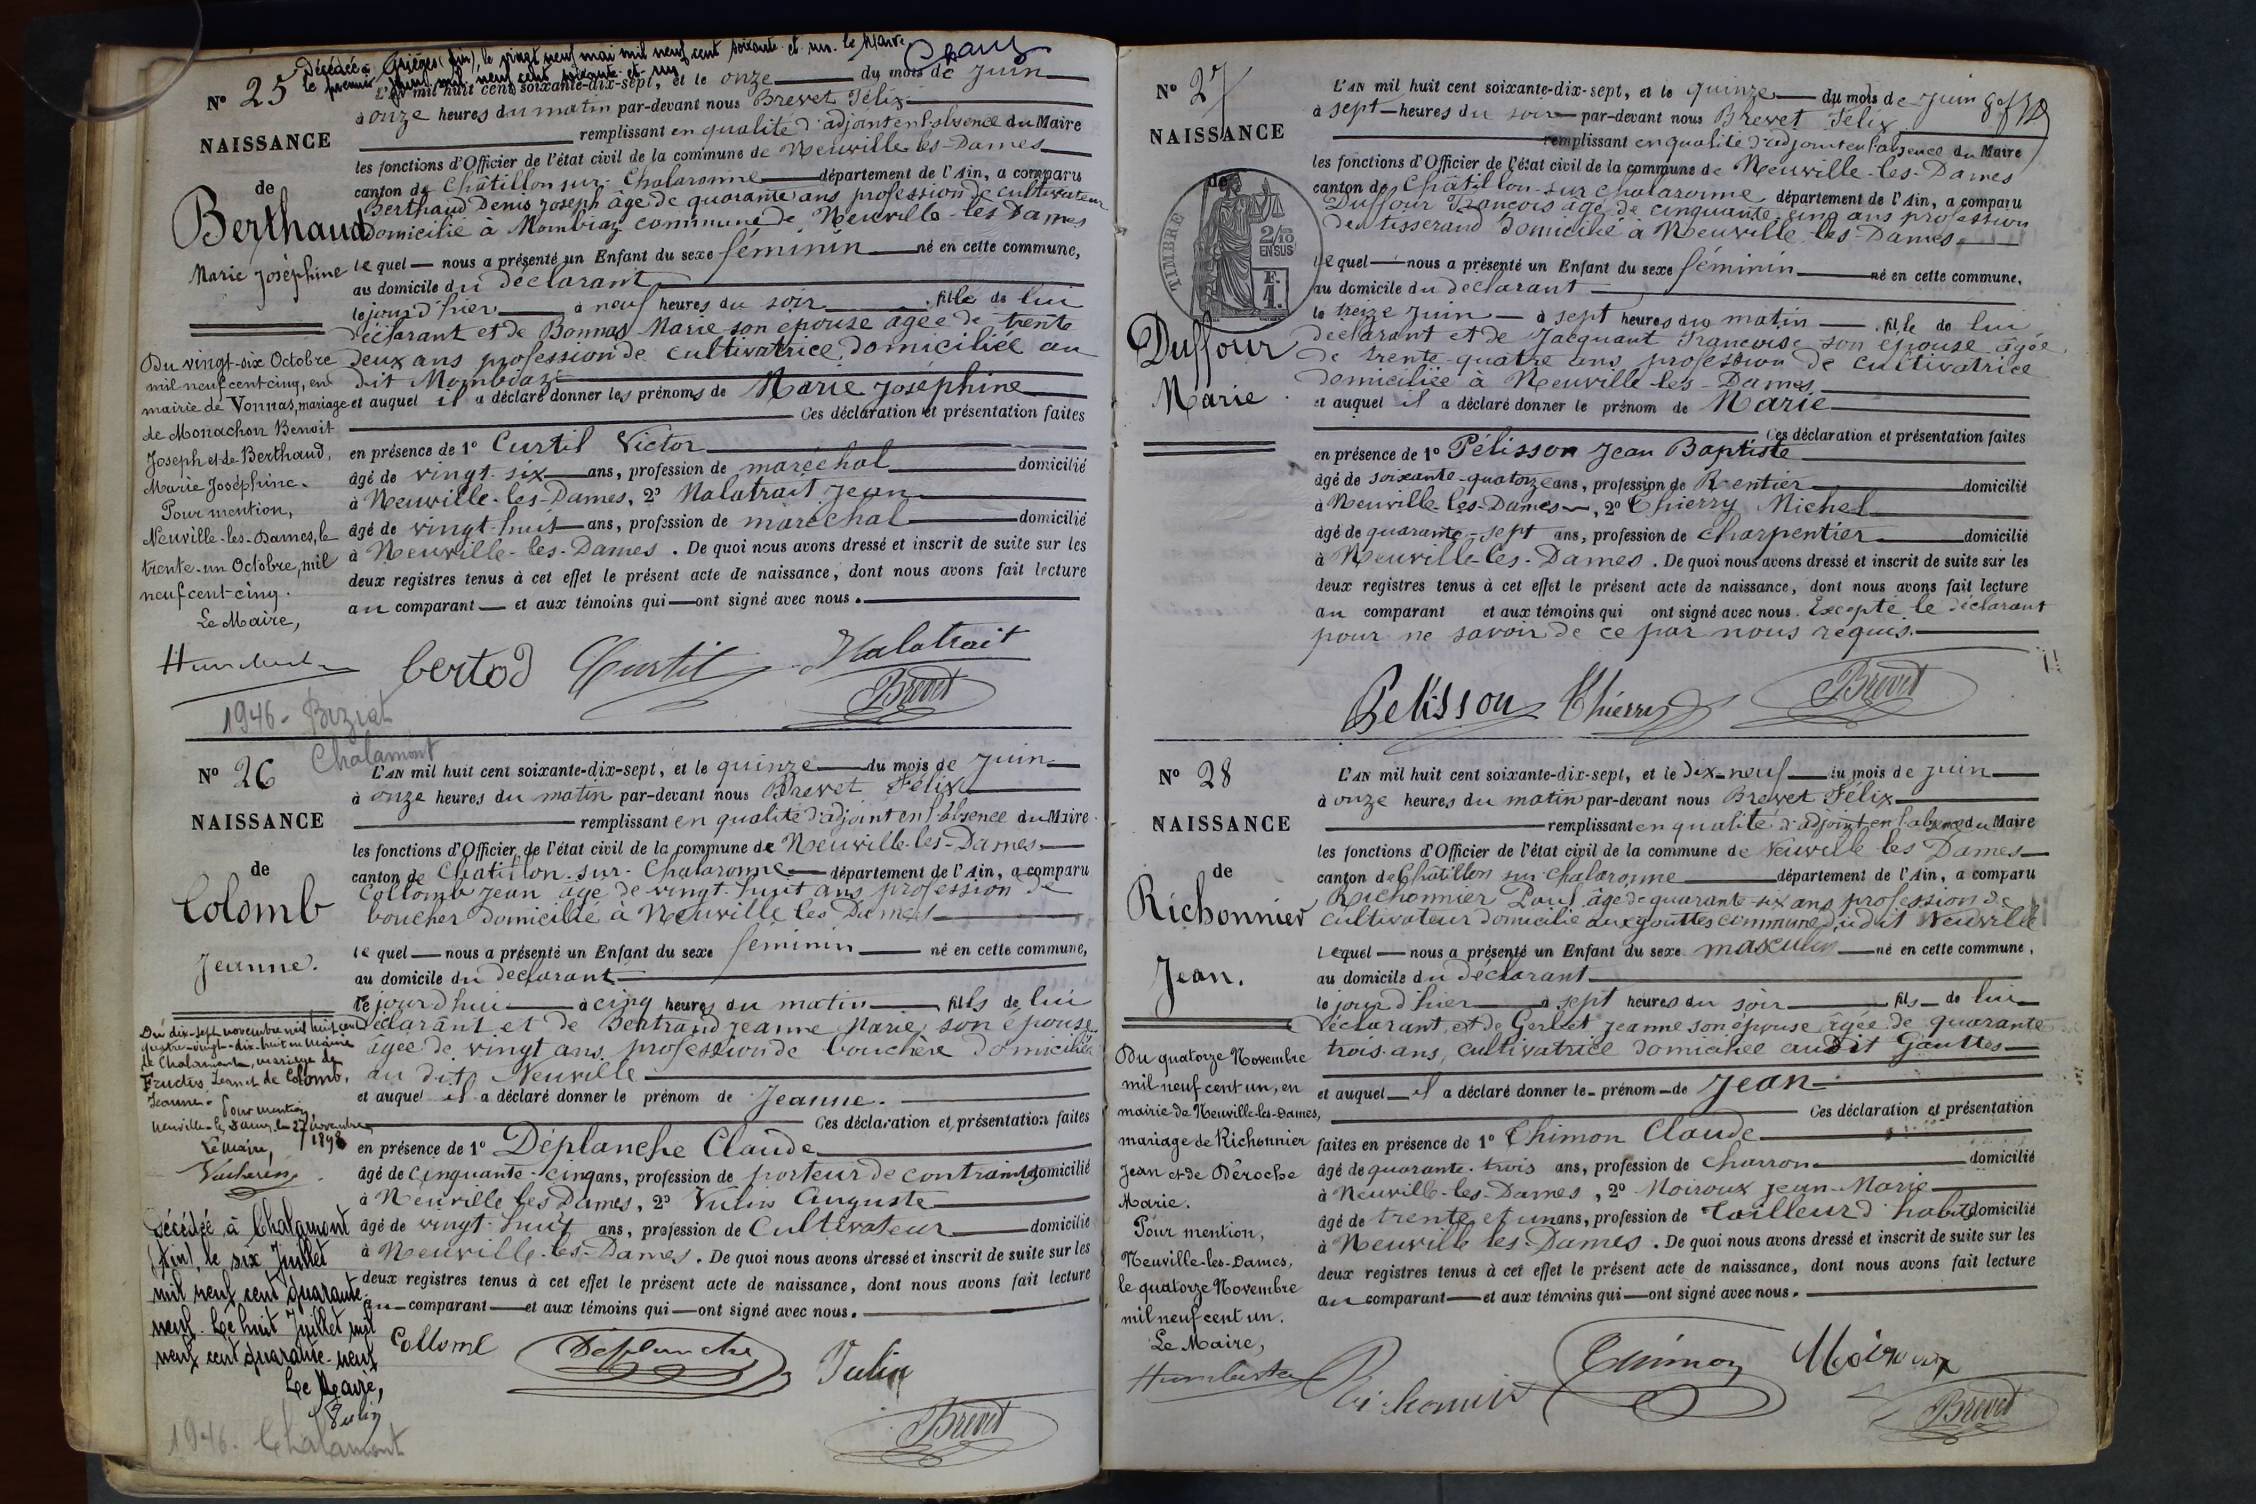 Décédée à Grièges (Ain), le vingt neuf mai mil neuf cent soixante et un. le Maire
le premier juin mil neuf cent soixante et un
N° 25
NAISSANCE
de
Berthaud
Marie Joséphine
Du vingt-six Octobre
mil neuf cent cinq, en
mairie de Vonnas, mariage
de Monachon Benoit
Joseph et de Berthaud,
Marie Joséphine.
Pour mention,
Neuville-les-Dames, le
trente-un Octobre, mil
neuf cent-cinq.
Le Maire,
L'AN mil huit cent soixante-dix-sept, et le onze du mois de Juin
à onze heures du matin par-devant nous Brevet Félix
remplissant en qualité d'adjoint en l'absence du Maire
les fonctions d'Officier de l'état civil de la commune de Neuville-les-Dames
canton de Châtillon-sur-Chalaronne département de l'Ain, a comparu
Berthaud Denis Joseph âgé de quarante ans profession de cultivateur
domicilié à Mombiaz commune de Neuville-les Dames
lequel nous a présenté un Enfant du sexe féminin né en cette commune,
au domicile du déclarant
le jour d'hier à neuf heures du soir fille de lui
déclarant et de Bonnas Marie son épouse âgée de trente
deux ans profession de cultivatrice domiciliée au
dit Mombiaz
et auquel il a déclaré donner les prénoms de Marie Joséphine
Ces déclaration et présentation faites
en présence de 1° Curtil Victor
âgé de vingt-six ans, profession de maréchal domicilié
à Neuville-les-Dames, 2° Malatrait Jean
âgé de vingt-huit ans, profession de maréchal domicilié
à Neuville-les-Dames. De quoi nous avons dressé et inscrit de suite sur les
deux registres tenus à cet effet le présent acte de naissance, dont nous avons fait lecture
au comparant et aux témoins qui ont signé avec nous.
bertod Curtil Malatrait
Brevet
1946 - Biziat
Chalamont
N° 26
NAISSANCE
de
Colomb
Jeanne.
Du dix-sept novembre mil huit cent
quatre-vingt-dix-huit en Mairie
de Chalamont, mariage de
Jean et de Colomb,
Jeanne.
Pour mention,
Neuville-les-Dames, le 27 novembre
1898
Le Maire,
Décédée à Chalamont
(Ain), le six Juillet
mil neuf cent quarante
neuf. Le huit Juillet mil
neuf cent quarante-neuf
Le Maire,
1946. Chalamont
L'AN mil huit cent soixante-dix-sept, et le quinze du mois de Juin
à onze heures du matin par-devant nous Brevet Félix
remplissant en qualité d'adjoint en l'absence du Maire
les fonctions d'Officier de l'état civil de la commune de Neuville-les-Dames
canton de Châtillon-sur-Chalaronne département de l'Ain, a comparu
Collomb Jean âgé de vingt-huit ans profession de
boucher domicilié à Neuville les Dames
lequel nous a présenté un Enfant du sexe féminin né en cette commune,
au domicile du déclarant
le jourd'hui à cinq heures du matin fille de lui
déclarant et de Bertrand Jeanne Marie son épouse
âgée de vingt ans profession de bouchère domiciliée
au dit Neuville
et auquel il a déclaré donner le prénom de Jeanne.
Ces déclaration et présentation faites
en présence de 1° Déplanche Claude
âgé de cinquante-cinq ans, profession de porteur de contrainte domicilié
à Neuville les Dames, 2° Vulin Auguste
âgé de vingt-huit ans, profession de Cultivateur domicilié
à Neuville-les-Dames. De quoi nous avons dressé et inscrit de suite sur les
deux registres tenus à cet effet le présent acte de naissance, dont nous avons fait lecture
au comparant et aux témoins qui ont signé avec nous.
Collomb Déplanche Vulin
Brevet
N° 27
NAISSANCE
de
TIMBRE
2/10
EN SUS
Duffour
Marie
L'AN mil huit cent soixante-dix-sept, et le quinze du mois de Juin
à sept heures du soir par-devant nous Brevet Félix
remplissant en qualité d'adjoint en l'absence du Maire
les fonctions d'Officier de l'état civil de la commune de Neuville-les-Dames
canton de Châtillon-sur Chalaronne département de l'Ain, a comparu
Duffour François âgé de cinquante-cinq ans profession
de tisserand domicilié à Neuville-les-Dames
lequel nous a présenté un Enfant du sexe féminin né en cette commune,
au domicile du déclarant
le treize Juin à sept heures du matin fille de lui
déclarant et de Jacquant Françoise son épouse âgée
de trente-quatre ans profession de cultivatrice
domiciliée à Neuville-les-Dames
et auquel il a déclaré donner le prénom de Marie
Ces déclaration et présentation faites
en présence de 1° Pélisson Jean Baptiste
âgé de soixante-quatorze ans, profession de Rentier domicilié
à Neuville-les-Dames, 2° Thierry Michel
âgé de quarante-sept ans, profession de charpentier domicilié
à Neuville-les-Dames. De quoi nous avons dressé et inscrit de suite sur les
deux registres tenus à cet effet le présent acte de naissance, dont nous avons fait lecture
au comparant et aux témoins qui ont signé avec nous. Excepté le déclarant
pour ne savoir de ce par nous requis.
Pelisson Thierry Brevet
N° 28
NAISSANCE
de
Richonnier
Jean.
Du quatorze Novembre
mil neuf cent un, en
mairie de Neuville-les-Dames,
mariage de Richonnier
Jean et de Déroche
Marie.
Pour mention,
Neuville-les-Dames,
le quatorze Novembre
mil neuf cent un.
Le Maire,
L'AN mil huit cent soixante-dix-sept, et le dix-neuf du mois de Juin
à onze heures du matin par-devant nous Brevet Félix
remplissant en qualité d'adjoint en l'absence du Maire
les fonctions d'Officier de l'état civil de la commune de Neuville les Dames
canton de Châtillon sur Chalaronne département de l'Ain, a comparu
Richonnier Paul âgé de quarante-six ans profession de
cultivateur domicilié aux gouttes commune du dit Neuville
lequel nous a présenté un Enfant du sexe masculin né en cette commune,
au domicile du déclarant
le jour d'hier à sept heures du soir fils de lui
déclarant et de Gerbet Jeanne son épouse âgée de quarante
trois ans, cultivatrice domiciliée audit Gouttes
et auquel il a déclaré donner le prénom de Jean
Ces déclaration et présentation
faites en présence de 1° Thimon Claude
âgé de quarante-trois ans, profession de charron domicilié
à Neuville-les-Dames, 2° Moiroux Jean-Marie
âgé de trente et un ans, profession de tailleur d'habits domicilié
à Neuville les-Dames. De quoi nous avons dressé et inscrit de suite sur les
deux registres tenus à cet effet le présent acte de naissance, dont nous avons fait lecture
au comparant et aux témoins qui ont signé avec nous.
Richonnier Thimon Moiroux
Brevet